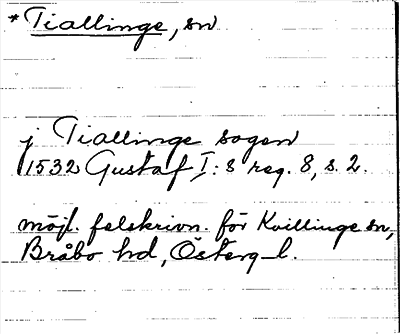 *Tiallinge, sn
j Tiallinge sogen
1532 Gustaf I:s reg. 8, s. 2.
möjl. felskrivn. för Kvillinge sn,
Bråbo hd, Österg. l.